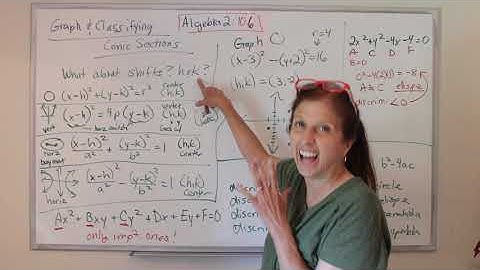 Graph & Classifying
Conic Sections
Algebra 2: 10.6
What about shifts? h & k?
(x-h)²+(y-k)²=r² center (h,k)
(x-h)²=4p(y-k) vertex (h,k)
vert
horiz
(x-h)²/a² + (y-k)²/b² = 1 (h,k) center
horiz
(x-h)²/a² - (y-k)²/b² = 1 (h,k) center
Ax²+Bxy+Cy²+Dx+Ey+F=0
only imp't ones!
Graph C
r=4
(x-3)²-(y+2)²=16
(h,k)=(3,-2)
2x²+y²-4y-4=0
A C D F
B=0
0²-4(2)(1)=-8
A≠C ellipse
discrim <0
b²-4ac
discr
discr
discr
circle
ellipse